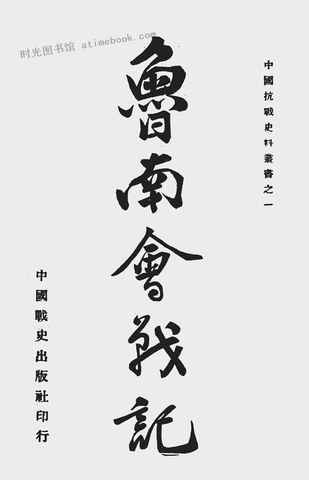 时光图书馆 atimebook.com
中國抗戰史料叢書之一
魯南會戰記
中國戰史出版社印行